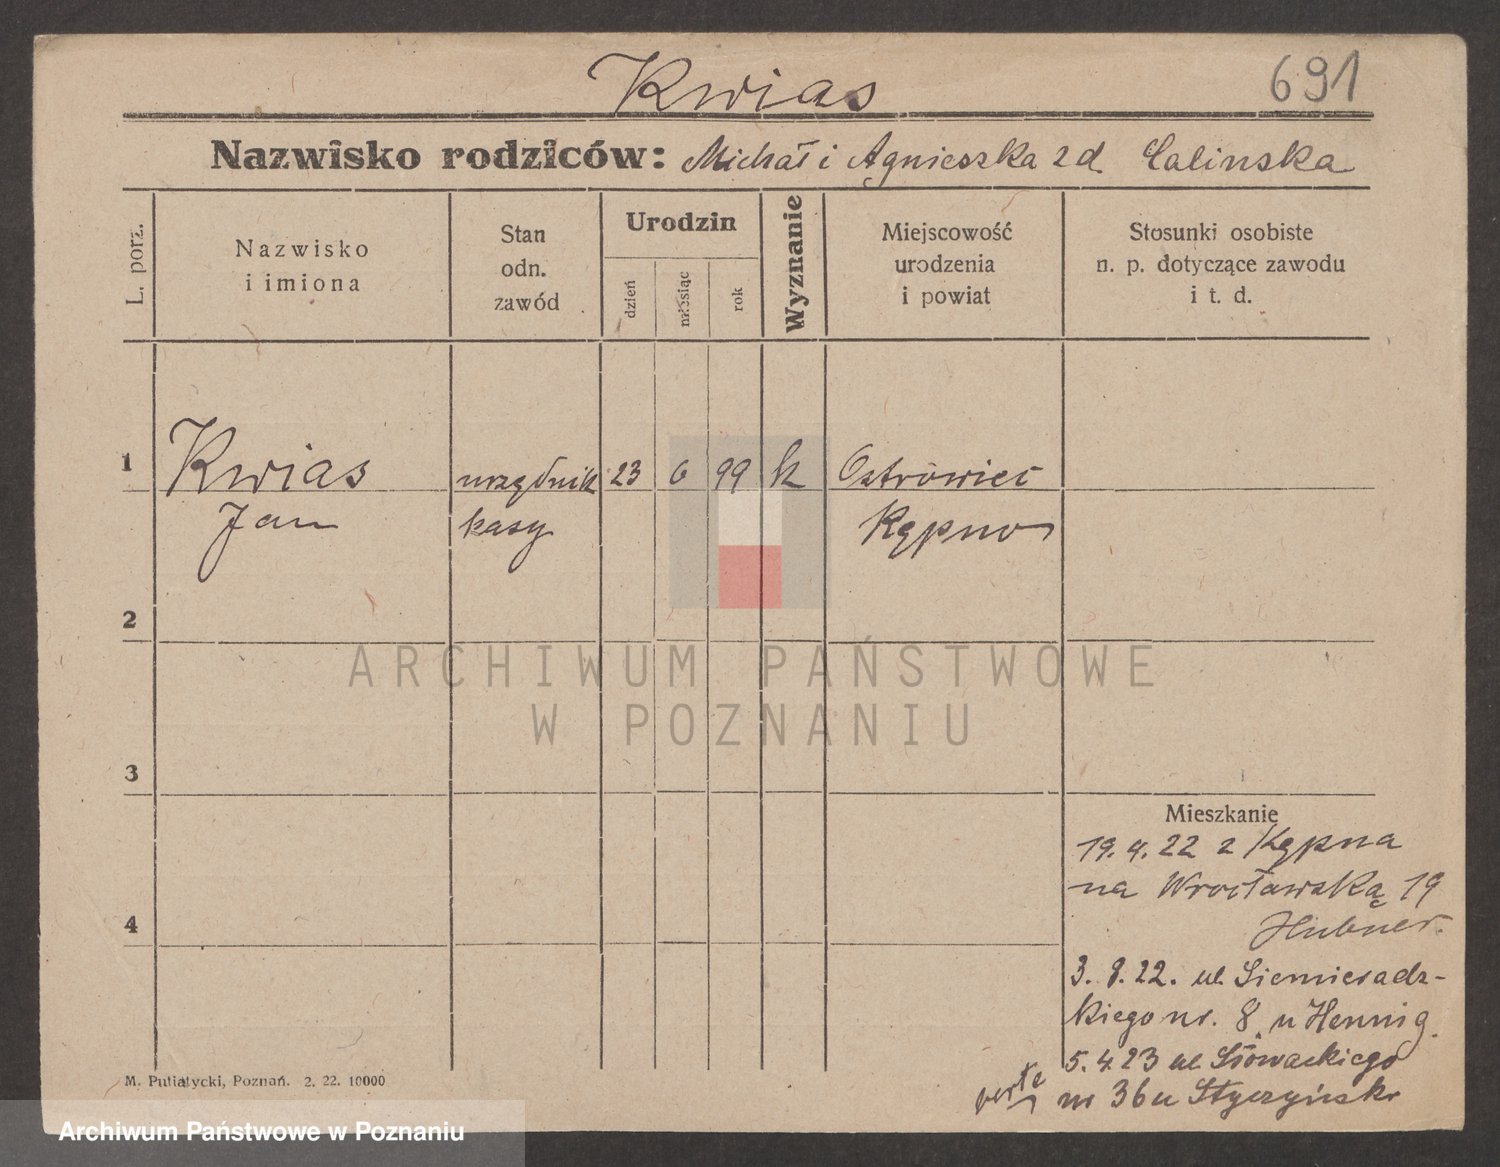 Kwias
691
Nazwisko rodziców: Michał i Agnieszka zd Calinska
L. porz.
Nazwisko
i imiona
Stan
odn.
zawód
Urodzin
dzień
miesiąc
rok
Wyznanie
Miejscowość
urodzenia
i powiat
Stosunki osobiste
n. p. dotyczące zawodu
i t. d.
1 Kwias urzędnik 23 6 99 k Ostrówiec
Jan kasy Kępno
2
ARCHIWUM PAŃSTWOWE
W POZNANIU
3
Mieszkanie
19.4.22 z Kępna
na Wrocławską 19
4
Hubner.
3. 8. 22. ul. Siemieradz-
kiego nr. 8, u Hennig.
5.4.23 ul. Słowackiego
nr 36 u
verte
M. Putiatycki, Poznań. 2. 22. 10000
Archiwum Państwowe w Poznaniu